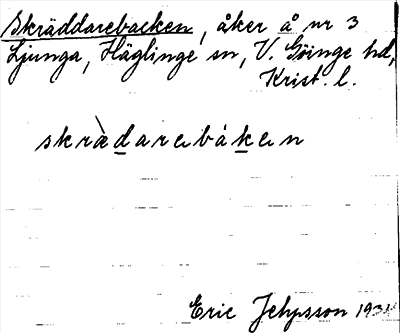 Skräddarebacken, åker å nr 3
Ljunga, Häglinge sn, V. Göinge hd,
Krist. l.
skràdarebáken
Eric